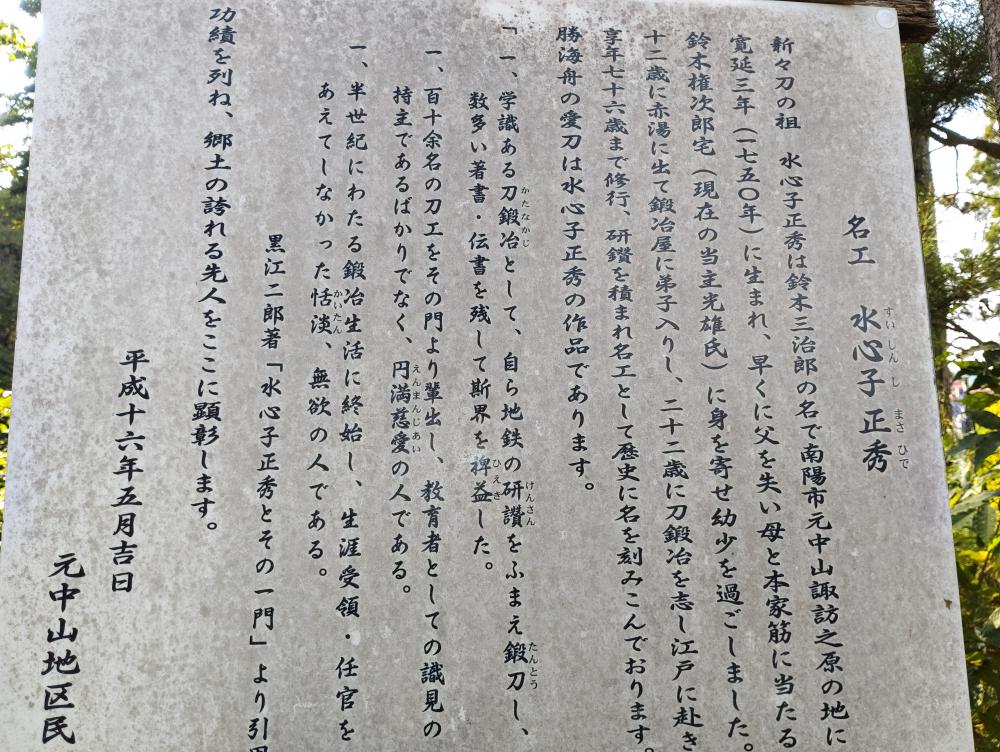 名工 水心子正秀
新々刀の祖 水心子正秀は鈴木三治郎の名で南陽市元中山諏訪之原の地に
寛延三年(一七五〇年)に生まれ、早くに父を失い母と本家筋に当たる
鈴木権次郎宅(現在の当主光雄氏)に身を寄せ幼少を過ごしました。
十二歳に赤湯に出て鍛冶屋に弟子入りし、二十二歳に刀鍛冶を志し江戸に赴き
享年七十六歳まで修行、研鑽を積まれ名工として歴史に名を刻みこんでおります。
勝海舟の愛刀は水心子正秀の作品であります。
「一、学識ある刀鍛冶として、自ら地鉄の研讃をふまえ鍛刀し、
数多い著書・伝書を残して斯界を裨益した。
一、百十余名の刀工をその門より輩出し、教育者としての識見の
持主であるばかりでなく、円満慈愛の人である。
一、半世紀にわたる鍛冶生活に終始し、生涯受領・任官を
あえてしなかった恬淡、無欲の人である。
黒江二郎著「水心子正秀とその一門」より引用
功績を列ね、郷土の誇れる先人をここに顕彰します。
平成十六年五月吉日
元中山地区民